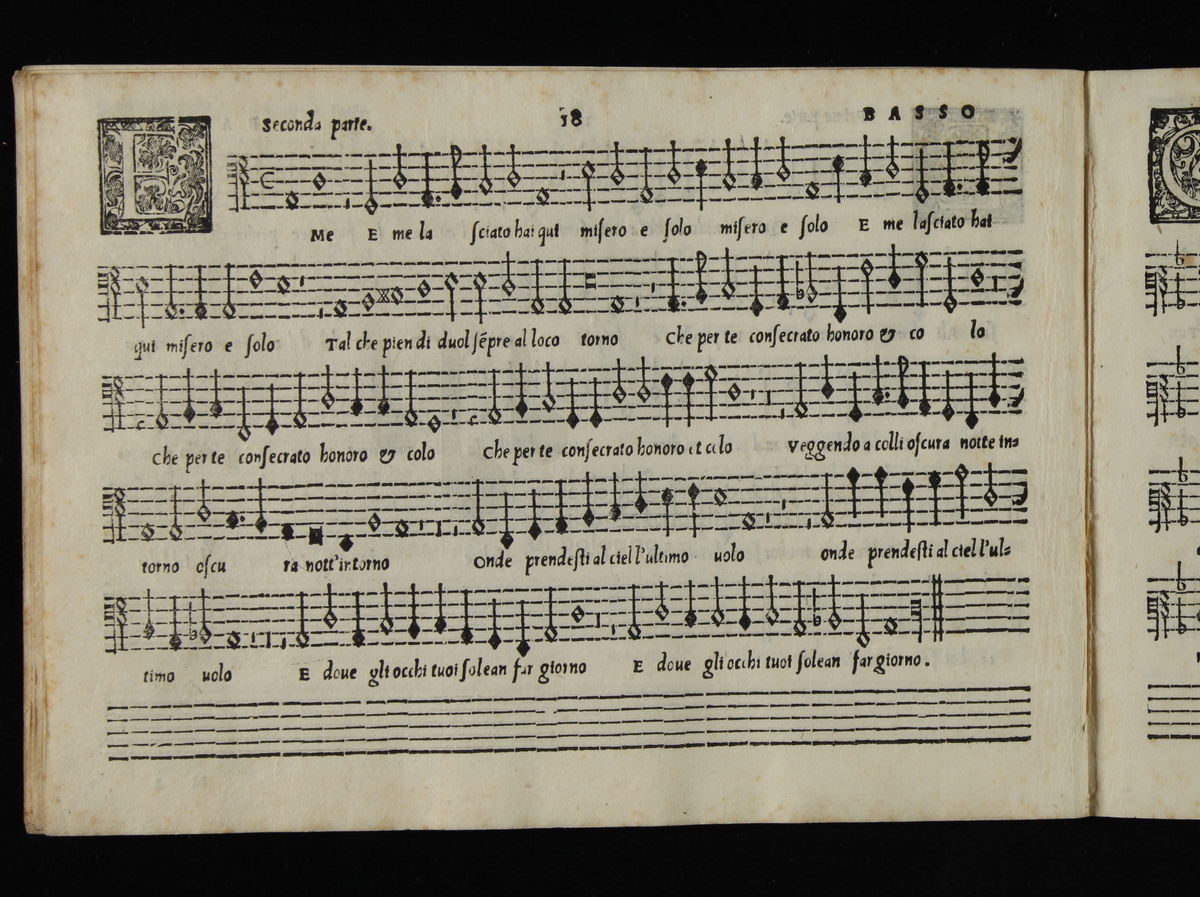 Seconda parte. 18 BASSO
E Me E me la sciato hai qui misero e solo misero e solo E me lasciato hai
qui misero e solo Tal che pien di duol sẽpre al loco torno Che per te consecrato honoro & co lo
Che per te consecrato honoro & colo Che per te consecrato honoro et colo Veggendo a colli oscura notte in=
torno oscu ra nott'intorno Onde prendesti al ciel l'ultimo uolo onde prendesti al ciel l'ul=
timo uolo E doue gli occhi tuoi solean far giorno E doue gli occhi tuoi solean far giorno.